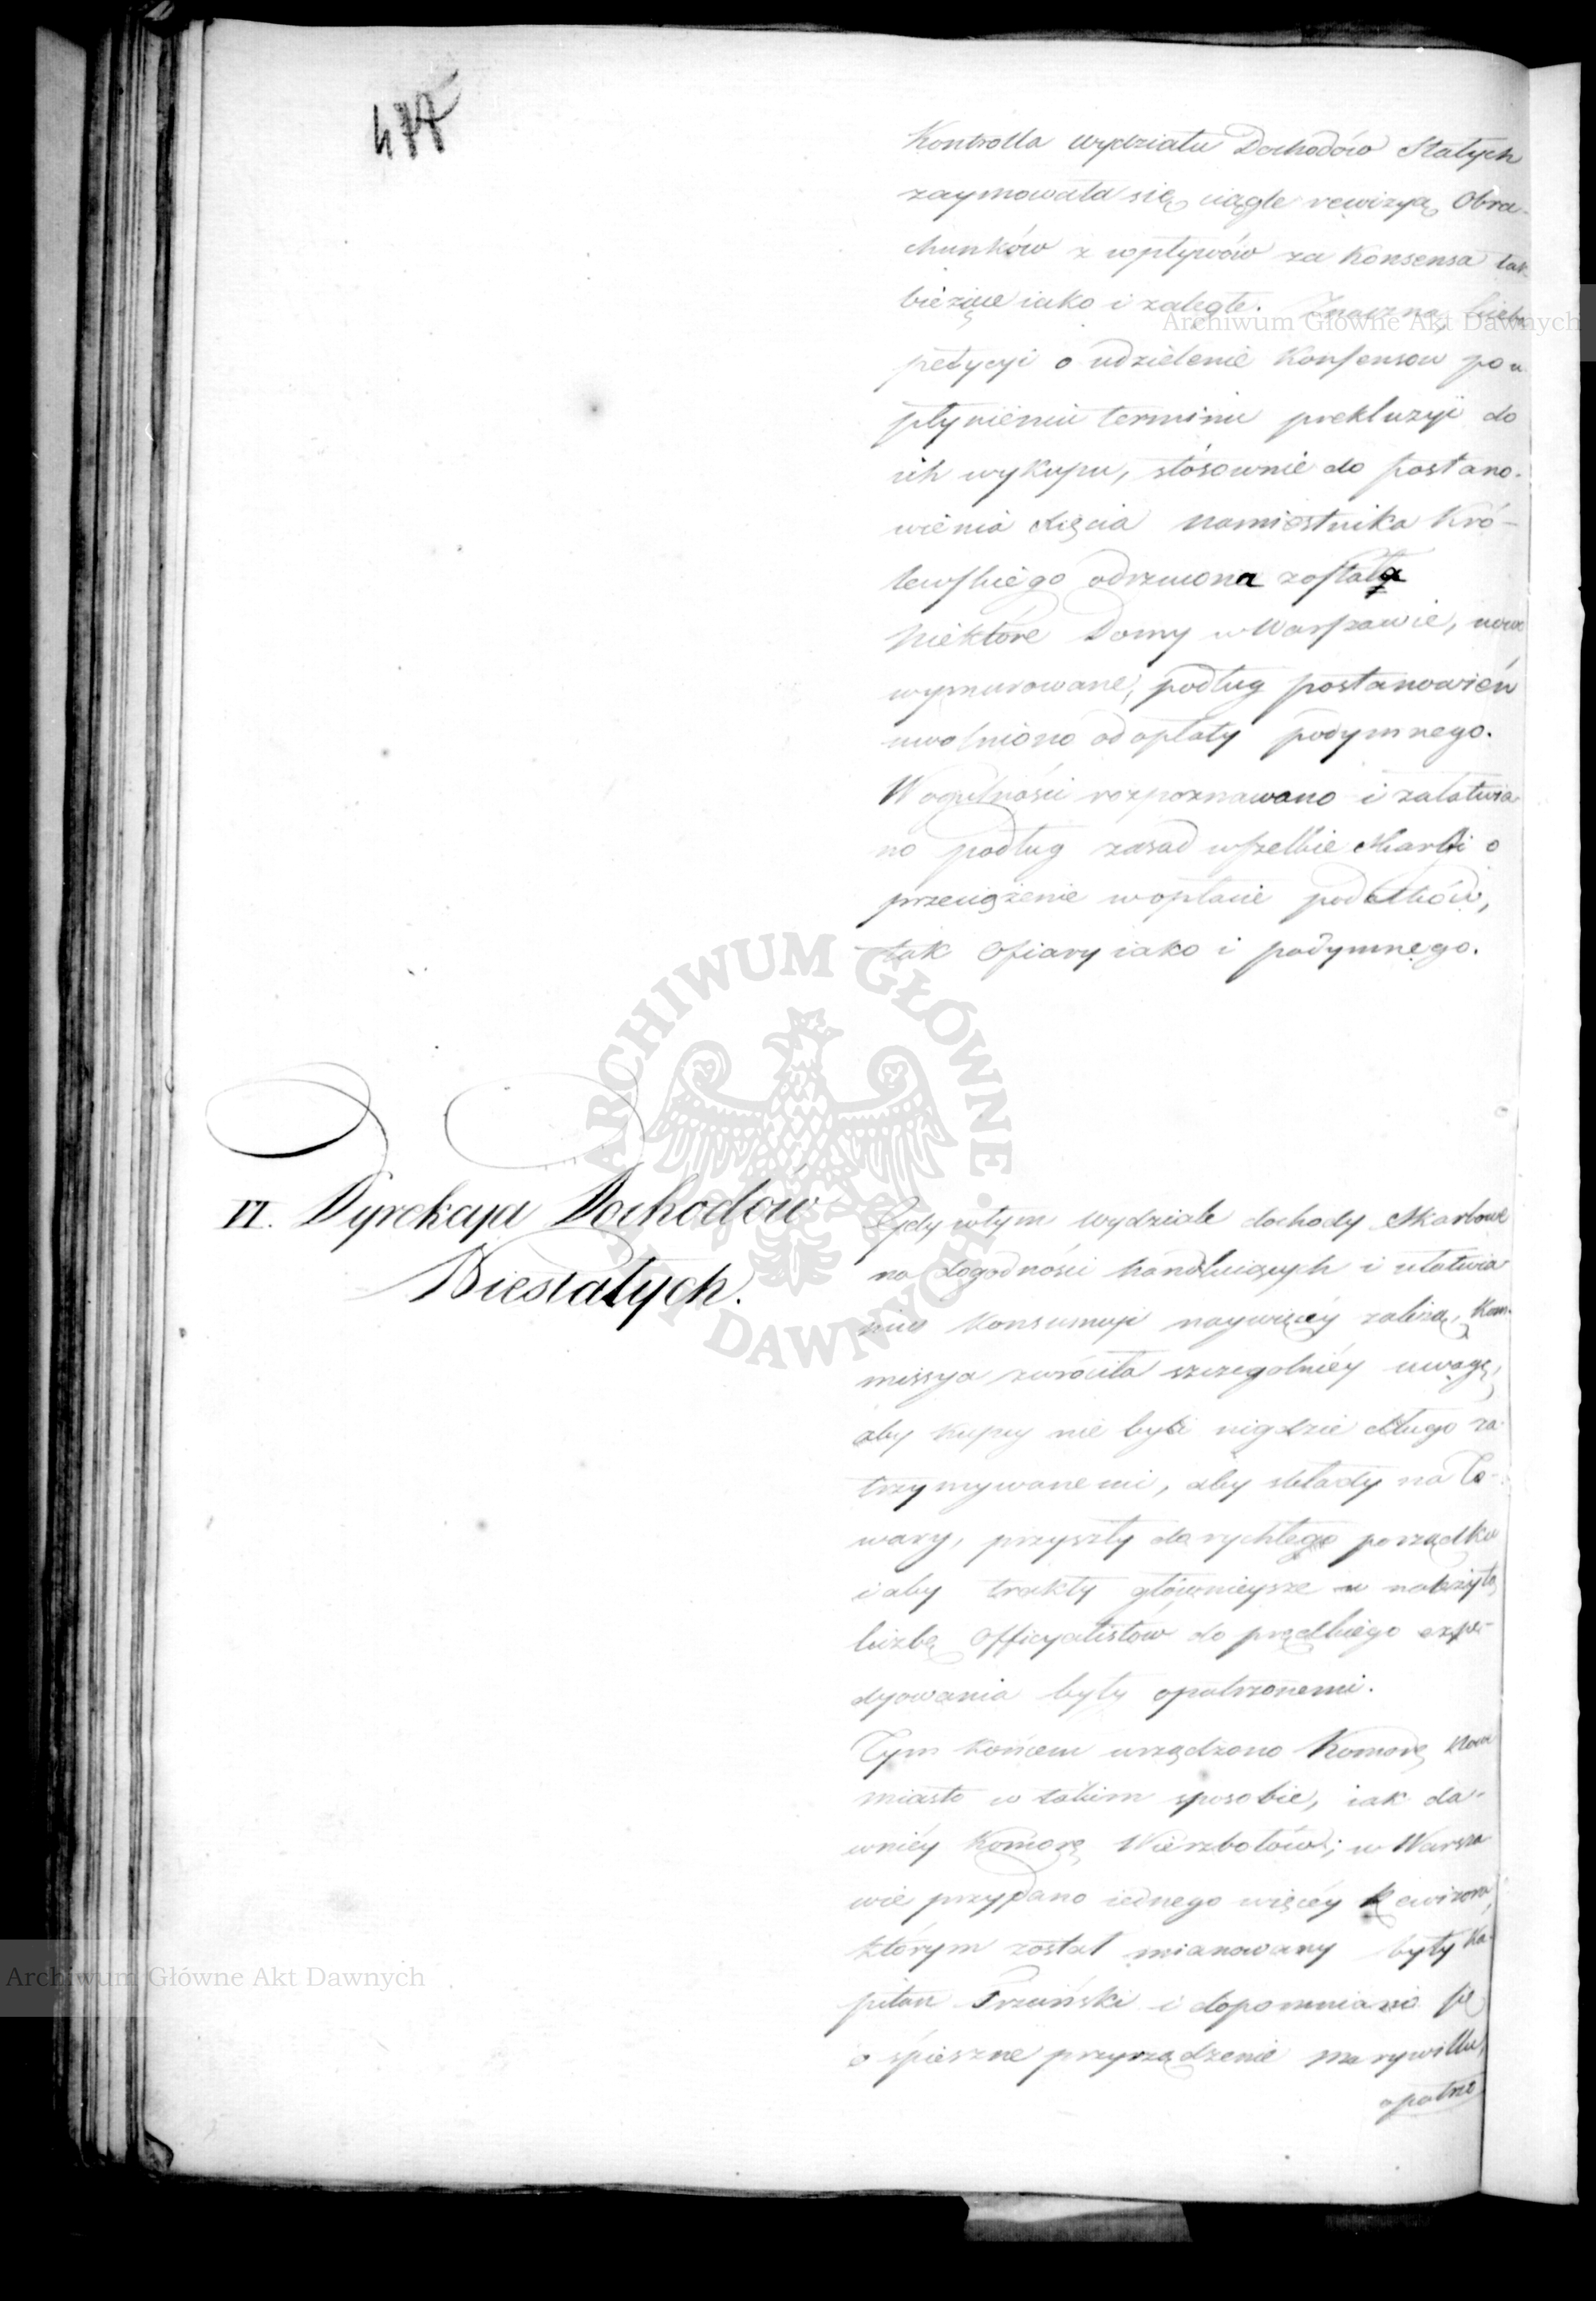 477
Kontrolla Wydziału Dochodów Stałych
zaymowała się ciągle rewizyą Obra-
chunków z wpływów za Konsensa tak
bieżące iako i zaległe. Znaczna liczba
petycyi o udzielenie Konsensow po u-
płynieniu terminu prekluzyi do
ich wykupu, stósownie do postano-
wienia Xięcia Namiestnika Kró-
lewskiego odrzucona została
Niektóre Domy w Warszawie, nowo
wymurowane, podług postanowień
uwolniono od opłaty podymnego.
W ogulności rozpoznawano i załatwia
no podług zasad wszelkie Skargi o
przeciążenie w opłacie podatków,
tak Ofiary iako i podymnego.
II. Dyrekcya Dochodów
Niestałych.
Gdy w tym wydziale dochody Skarbowe
na dogodności handluiących i ułatwia
niu Konsumcyi naywięcéy zależą, Kom-
missya zwróciła szczególniéy uwagę,
aby kupcy nie byli nigdzie długo za-
trzymywanemi, aby składy na To-
wary, przyszły do rychłego porządku
i aby trakty głównieysze w należytą
liczbę Officyalistów do prędkiego expe-
dyowania były opatrzonemi.
Tym końcem urządzono Komorę Nowe
miasto w takim sposobie, iak da-
wniéy Komorę Wierzbołów; w Warsza
wie przydano iednego więcéy Rewizora,
którym został mianowany były Ka-
pitan i dopomniano się
o śpieszne przyrządzenie Marywillu,
opatrzo
ARCHIWUM GŁÓWNE AKT DAWNYCH
Archiwum Główne Akt Dawnych
Archiwum Główne Akt Dawnych